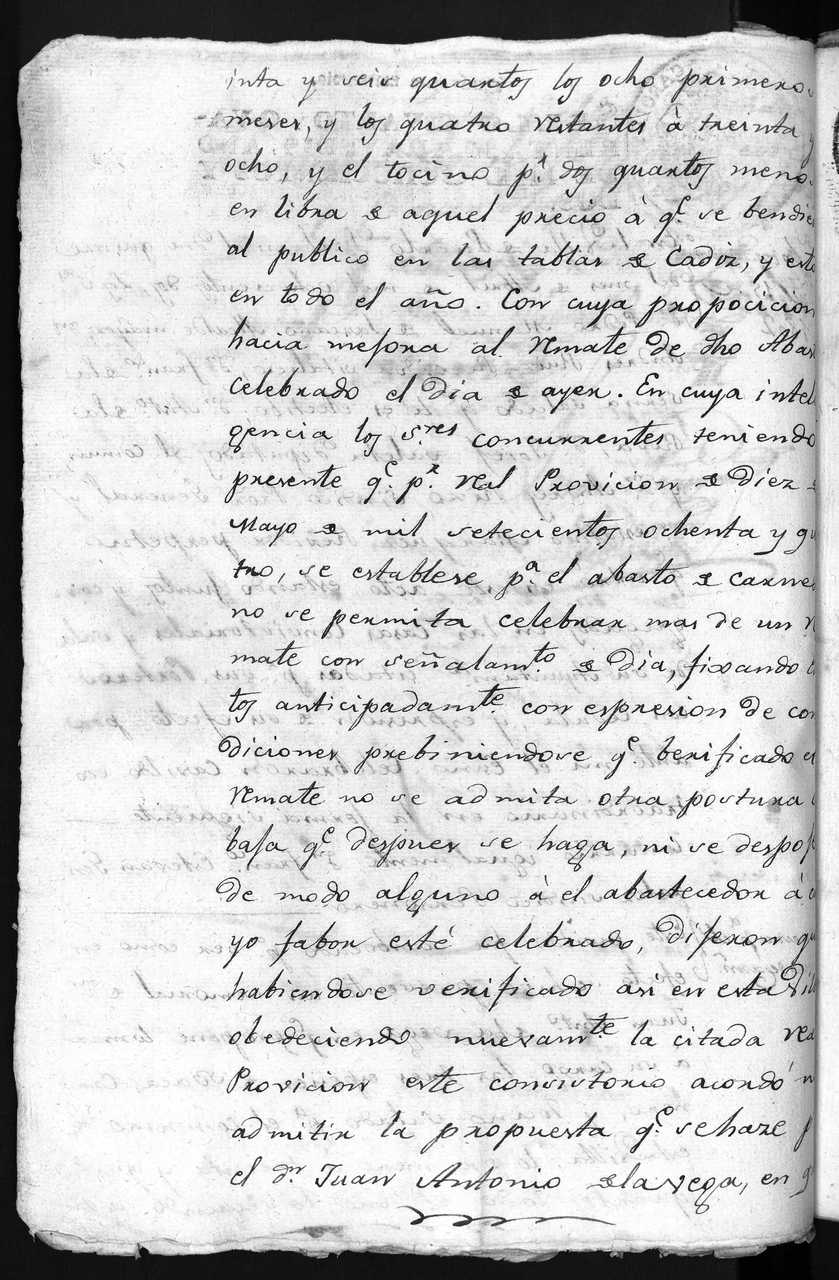 inta y seis quartos los ocho primeros
meses, y los quatro restantes à treinta y
ocho, y el tocino pr. dos quartos menos
en libra de aquel precio à qe. se bendie
al publico en las tablas de Cadiz, y esto
en todo el año. Con cuya propocicion
hacia mejora al remate de dho Abas
celebrado el dia de ayer. En cuya intel
gencia los Sres concurrentes teniendo
presente qe. pr. real Provicion de Diez de
Mayo de mil setecientos ochenta y qu
tro, se establese pa. el abasto de carnes
no se permita celebrar mas de un re
mate con señalamto de Dia, fixando
tos anticipadamte. con espresion de con
diciones prebiniendose qe. berificado el
remate no se admita otra postura
baja qe despues se haga, ni se despoj
de modo alguno à el abastecedor à cu
yo fabor esté celebrado, dijeron qu
habiendose verificado asi en esta Villa
obedeciendo nuevamte la citada rea
Provicion este consistorio acordó n
admitir la propuesta qe. se haze p
el dn Juan Antonio de la vega, en q